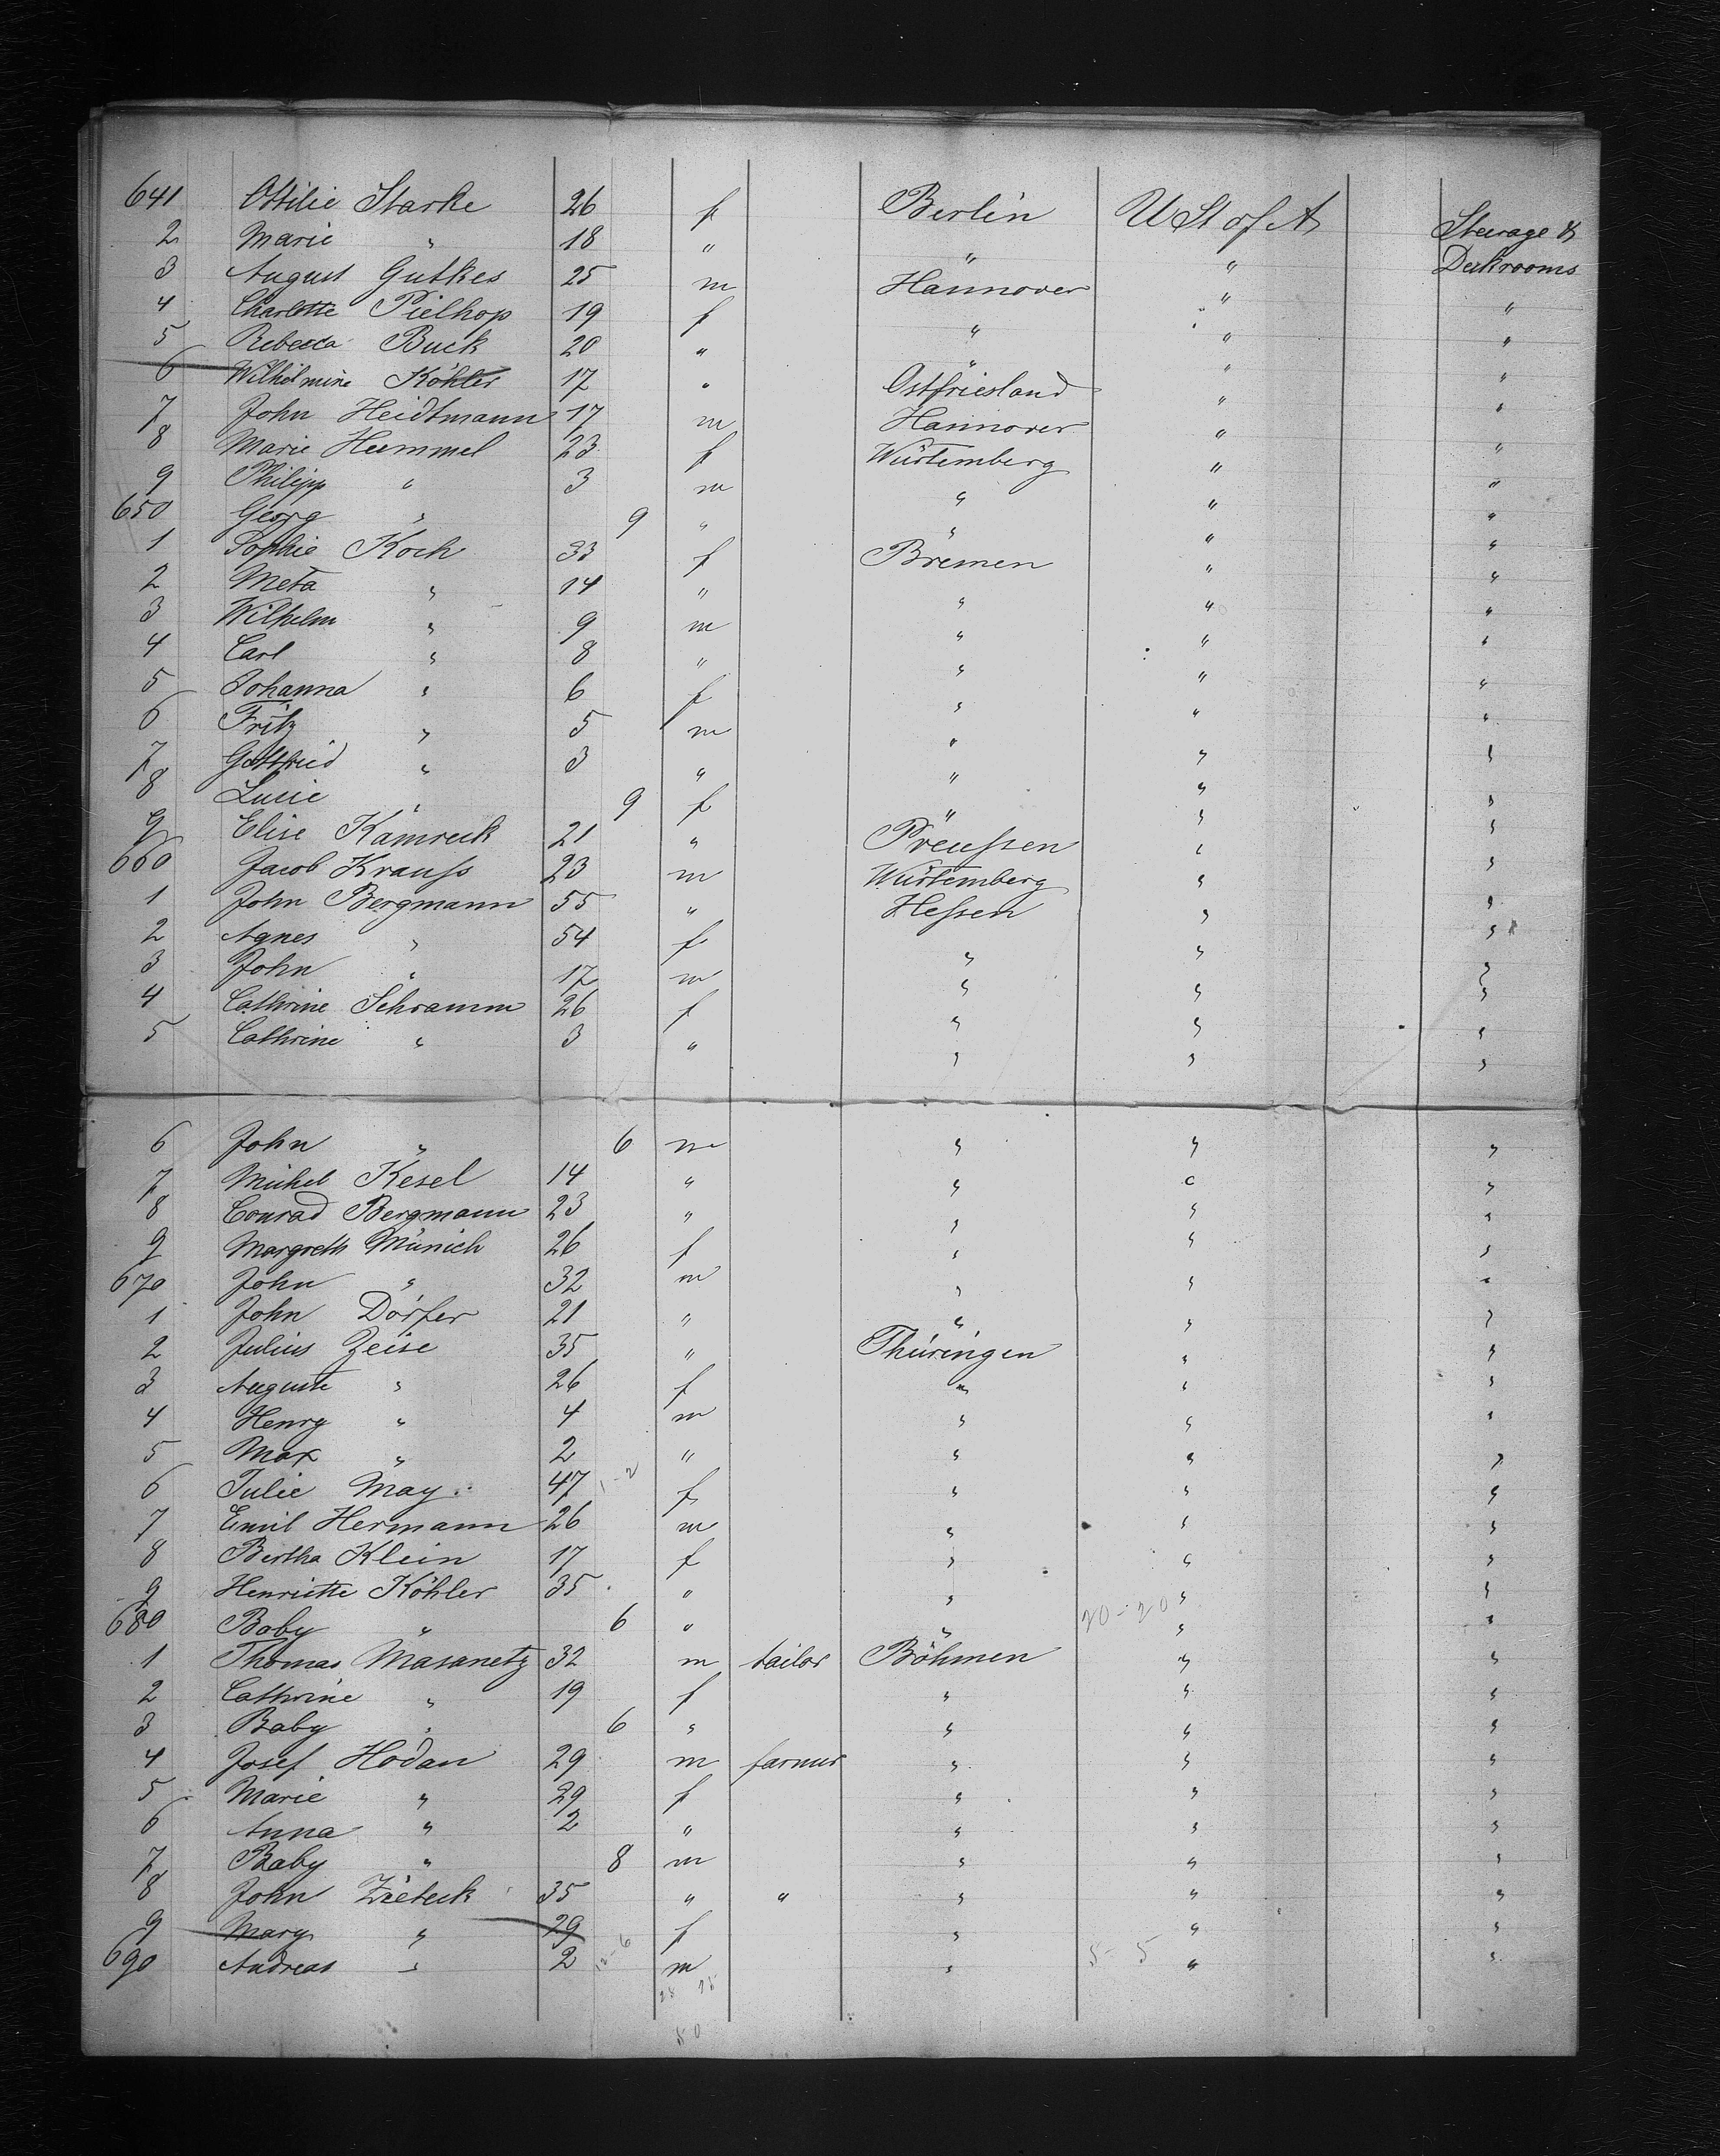 641 Ottilie Starke 26 f Berlin U St of A Steerage &
2 Marie " 18 " " " Deckrooms
3 August Gutkes 25 m Hannover " "
4 Charlotte Pielhop 19 f " " "
5 Rebecca Buck 20 " " " "
6 Wilhelmine Köhler 17 " Ostfriesland " "
7 John Heidtmann 17 m Hannover " "
8 Marie Hummel 23 f Würtemberg " "
9 Philipp " 3 m " " "
650 Georg " 9 " " " "
1 Sophie Koch 33 f Bremen " "
2 Meta " 14 " " " "
3 Wilhelm " 9 m " " "
4 Carl " 8 " " " "
5 Johanna " 6 f " " "
6 Fritz " 5 m " " "
7 Gottfried " 3 " " " "
8 Lucie " 9 f " " "
9 Elise Kamreck 21 " Preussen " "
660 Jacob Krauss 23 m Würtemberg " "
1 John Bergmann 55 " Hessen " "
2 Agnes " 54 f " " "
3 John " 17 m " " "
4 Cathrine Schramm 26 f " " "
5 Cathrine " 3 " " " "
6 John " 6 m " " "
7 Michel Kesel 14 " " " "
8 Conrad Bergmann 23 " " " "
9 Margreth Münich 26 f " " "
670 John " 32 m " " "
1 John Dörfer 21 " " " "
2 Julius Zeise 35 " Thüringen " "
3 Auguste " 26 f " " "
4 Henry " 4 m " " "
5 Max " 2 " " " "
6 Julie May 47 1-2 f " " "
7 Emil Hermann 26 m " " "
8 Bertha Klein 17 f " " "
9 Henriette Köhler 35 " " " "
680 Baby " 6 " " 20-20 " "
1 Thomas Masanetz 32 m tailor Böhmen " "
2 Cathrine " 19 f " " "
3 Baby " 6 " " " "
4 Josef Hodan 29 m farmer " " "
5 Marie " 29 f " " "
6 Anna " 2 " " " "
7 Baby " 8 m " " "
8 John 35 " " " " "
9 Mary " 29 f " " "
690 Andreas " 2 12-6 m " 5-5 " "
50